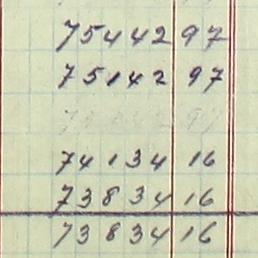 75442 97
75142 97
74134 16
73834 16
73834 16